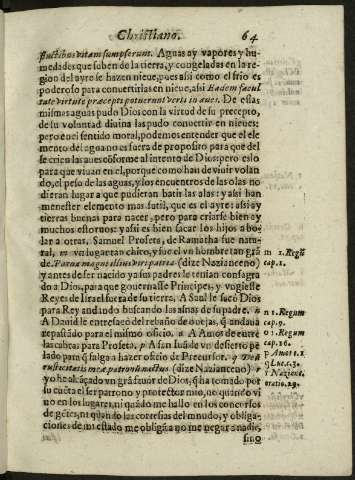 Christiano. 64
fluctibus vitam sumpserunt. Aguas ay vapores y hu-
medades que suben de la tierra, y congeladas en la re-
gion del ayre se hazen nieue, pues assi como el frio es
poderoso para conuertirlas en nieue, assi Eadem facul
tate virtute præcepti potuerunt verti in aues. De estas
mismas aguas pudo Dios con la virtud de su precepto,
de su voluntad diuina las pudo conuertir en nieues:
pero en el sentido moral, podemos entender que el ele
mento del agua no es fuera de proposito para que del
se crien las aues cõforme al intento de Dios: pero eslo
para que viuan en el, porque como han de viuir volan
do, el peso de las aguas, y los encuentros de las olas no
dieran lugar a que pudieran batir las alas: y assi han
menester elemento mas sutil, que es el ayre: assi ay
tierras buenas para nacer, pero para criarse bien ay
muchos estoruos: y assi es bien sacar los hijos a bo-
lar a otras. Samuel Profeta, de Ramatha fue natu-
ral, m vn lugar tan chico, y fue el vn hombre tan grã
de. Paruæ magnus illius vir patriæ (dize Nazianceno)
y antes de ser nacido ya sus padres le tenian consagra
do a Dios, para que gouernasse Principes, y vngiesse
Reyes de Israel fuera de su tierra. A Saul le sacò Dios
para Rey andando buscando las asnas de su padre. n
A Dauid le entresacò del rebaño de ouejas, q̃ andaua
repastãdo para el mismo oficio. o A Amos de entre
las cabras para Profeta. p A san Iuã de vn desierto pe
lado para q̃ salga a hazer oficio de Precursor. q De
rusticitatis meæ patronũ nactus (dize Nazianceno) r
yo he alcãçado vn grã fauor de Dios, q̃ ha tomado por
su cuẽta el ser patrono y protector mio, no quando vi
uo en los lugares, ni quãdo me hallo en los conciertos
de gẽtes, ni quando las cortesias del mũdo, y obliga-
ciones de mi estado me obligã a no me negar a nadie,
sino
m 1. Regũ
cap. 1.
n 1. Regum
cap. 9.
o 1. Regum
cap. 16.
p Amos 1.
q Luc. c. 3.
r Nazianc.
oratio. 29.